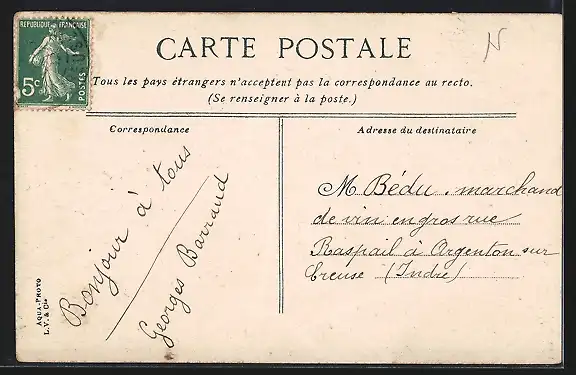 REPUBLIQUE FRANÇAISE
5c
POSTES
N
CARTE POSTALE
Tous les pays étrangers n'acceptent pas la correspondance au recto.
(Se renseigner à la poste.)
Correspondance
Bonjour à tous
Georges Barraud
AQUA-PHOTO
L.V. & Cie
Adresse du destinataire
M Bédu, marchand
de vin en gros rue
Raspail à Argenton sur
Creuse (Indre)